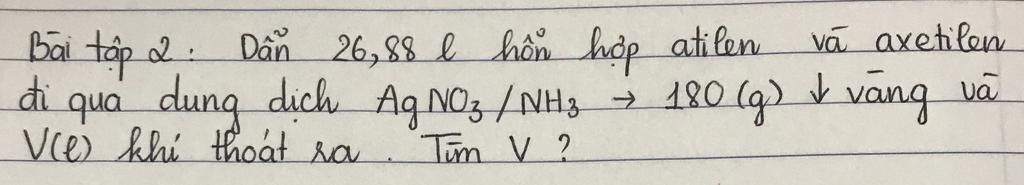 Bài tập 2: Dẫn 26,88 l hỗn hợp atilen và axetilen
đi qua dung dịch AgNO3/NH3 → 180 (g) ↓ vàng và
V(l) khí thoát ra. Tìm V?